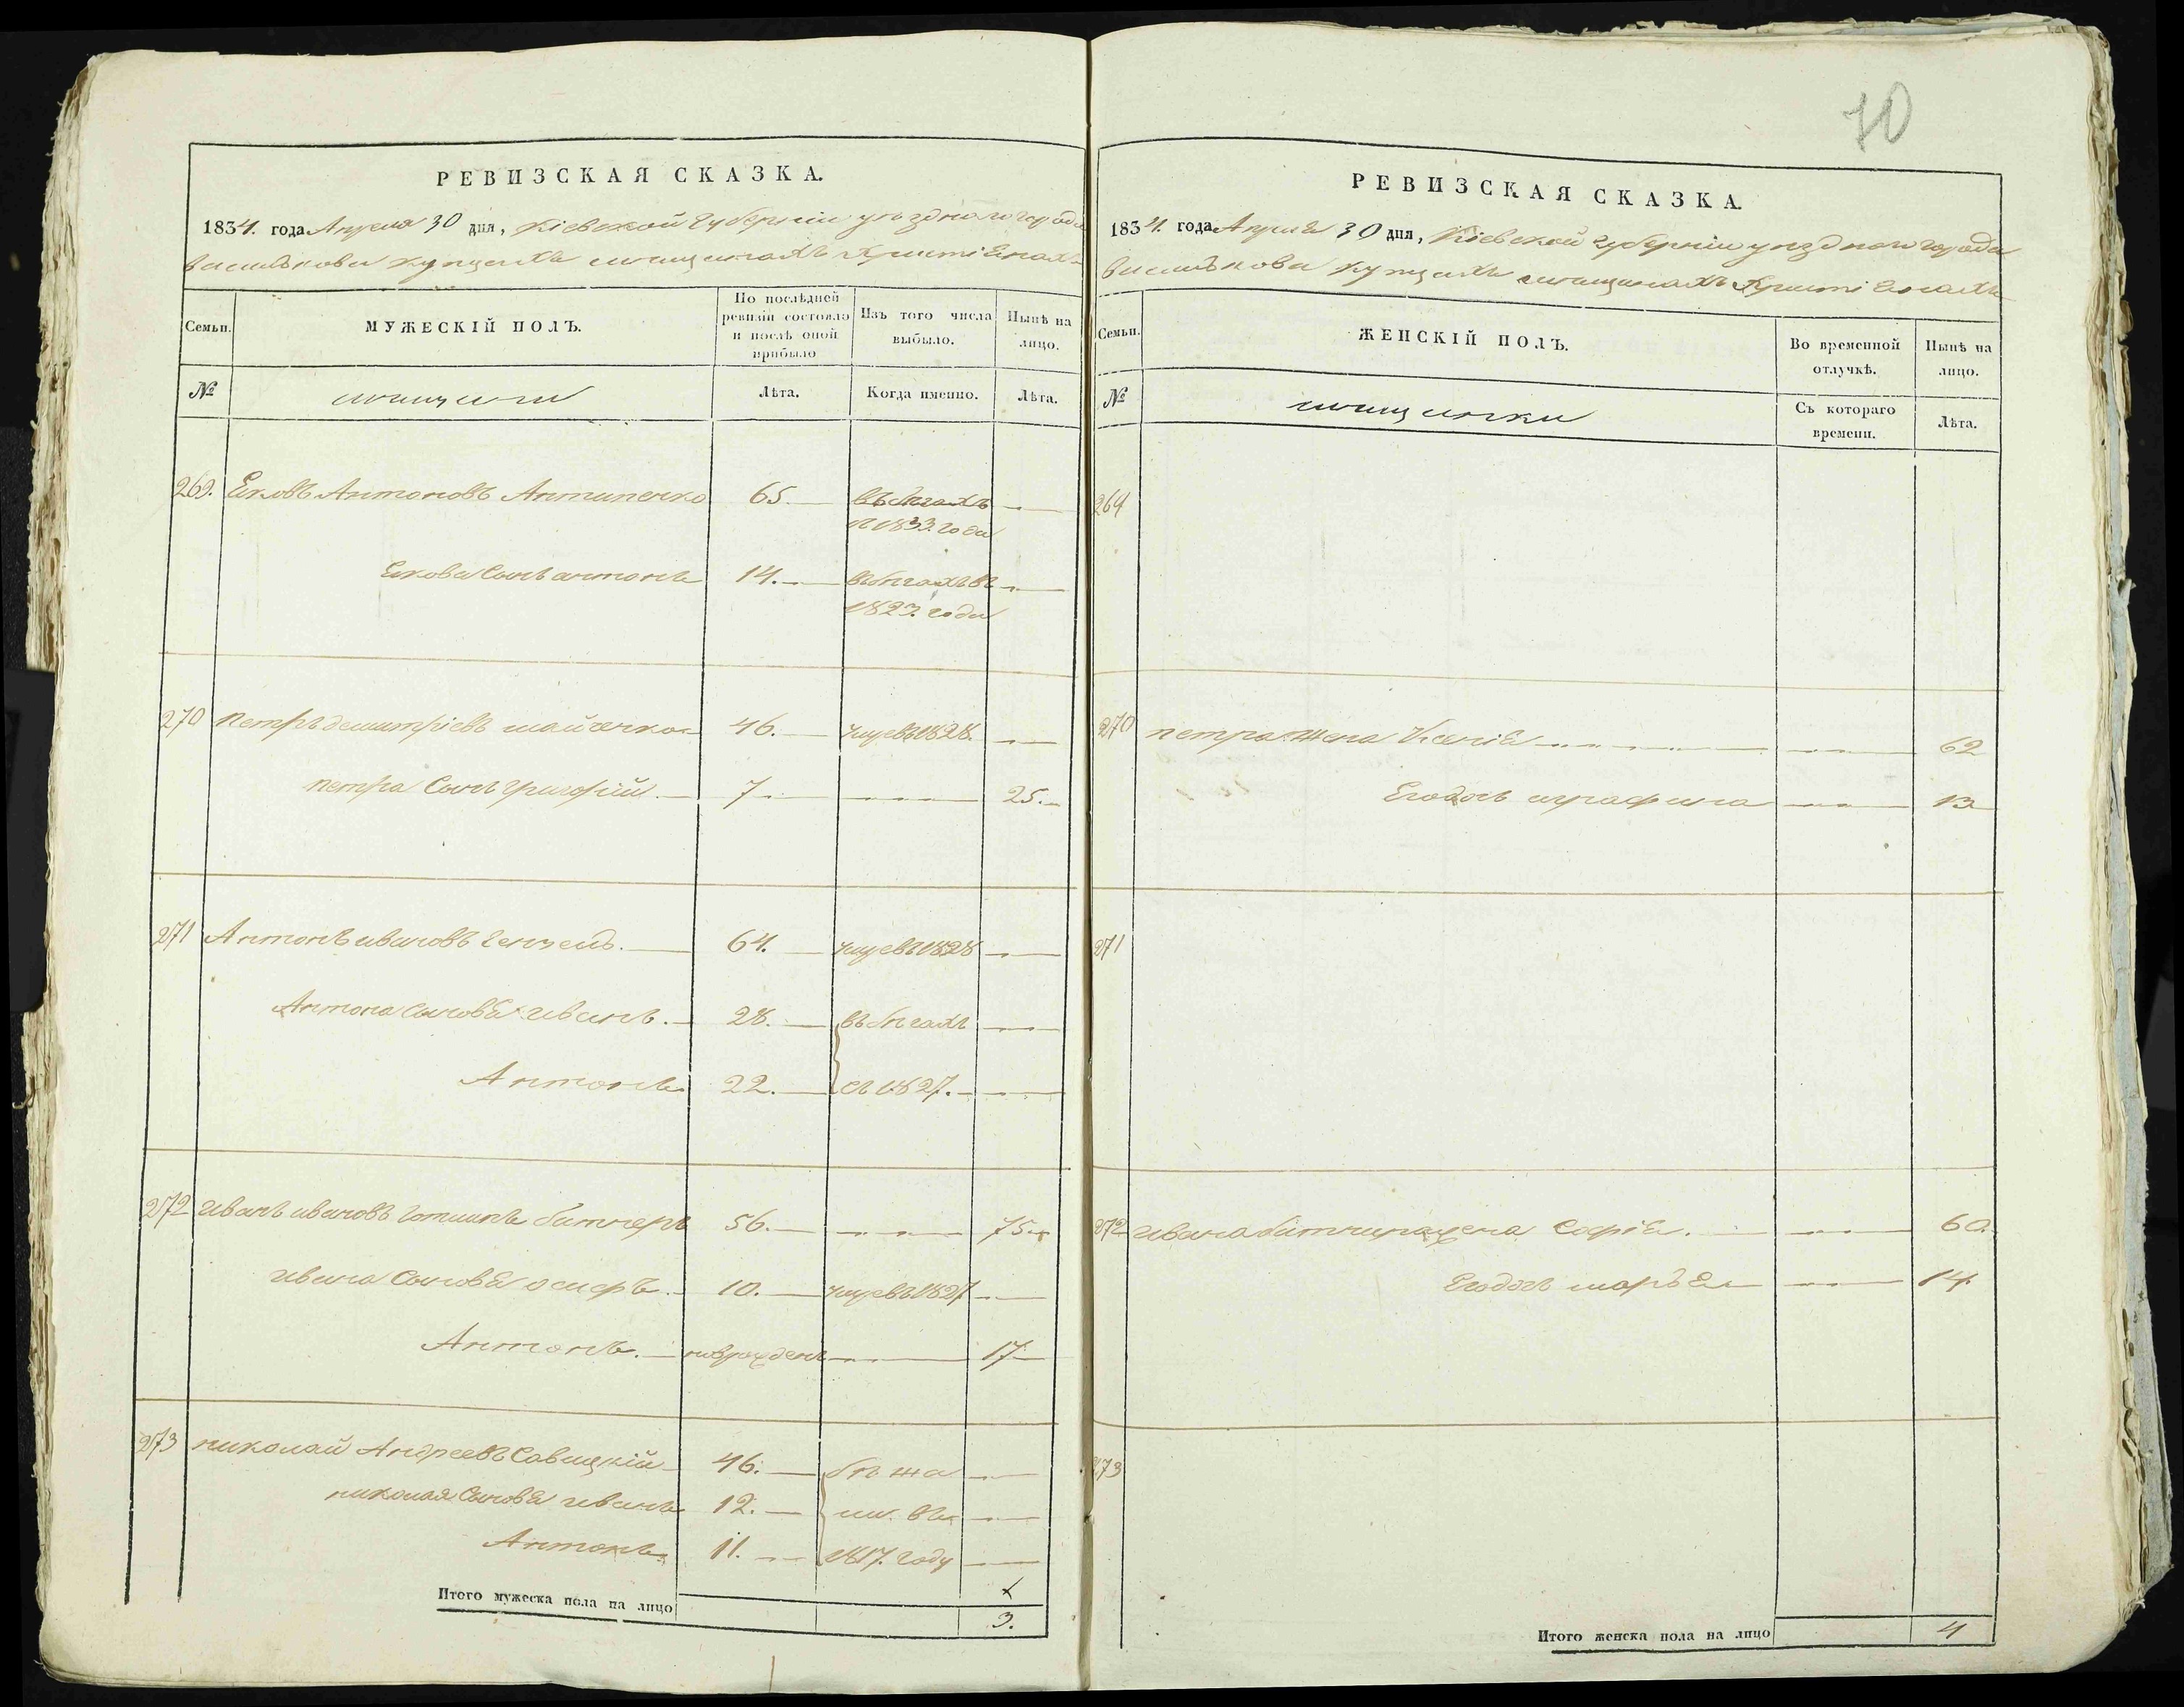 РЕВИЗСКАЯ СКАЗКА.
1834. года Апреля 30 дня, Кіевской губерніи уезднаго города
василькова купцахъ мещанахъ христіянахъ
Семьи. МУЖЕСКІЙ ПОЛЪ. По послѣдней ревизіи состояло и послѣ оной прибыло Изъ того числа выбыло. Нынѣ на лицо.
№ мещани Лѣта. Когда именно. Лѣта.
269. Яковъ Антоновъ Антипенко 65. въ бегахъ
1833. года
Якова Сынъ антонъ 14. въ бегахъ въ
1823. года
270 петръ демитріевъ 46. умре въ 1828.
петра Сынъ григорій 7 25.
271 Антонъ ивановъ 64. умре въ 1828
Антона Сыновья иванъ. 28. въ бегахъ
Антонъ 22. съ 1827.
272 иванъ ивановъ битнеръ 56. 75
ивана Сыновья осифъ. 10. умре въ 1827
Антонъ. новрожденъ 17
273 николай Андреевъ Савицкій 46. бежа
николая Сыновья иванъ 12. ли въ
Антонъ 11. 1817. году
Итого мужеска пола на лицо 3.
70
РЕВИЗСКАЯ СКАЗКА.
1834. года Апреля 30 дня, Кіевской губерніи уезднаго города
василькова купцахъ мещанахъ христіянахъ
Семьи. ЖЕНСКІЙ ПОЛЪ. Во временной отлучкѣ. Нынѣ на лицо.
№ мещанки Съ котораго времени. Лѣта.
269
270 петра жена Ксенія 62
Егодочь аграфина 13
271
272 ивана битнира жена Софія. 60.
Егодочь марья 14
273
Итого женска пола на лицо 4